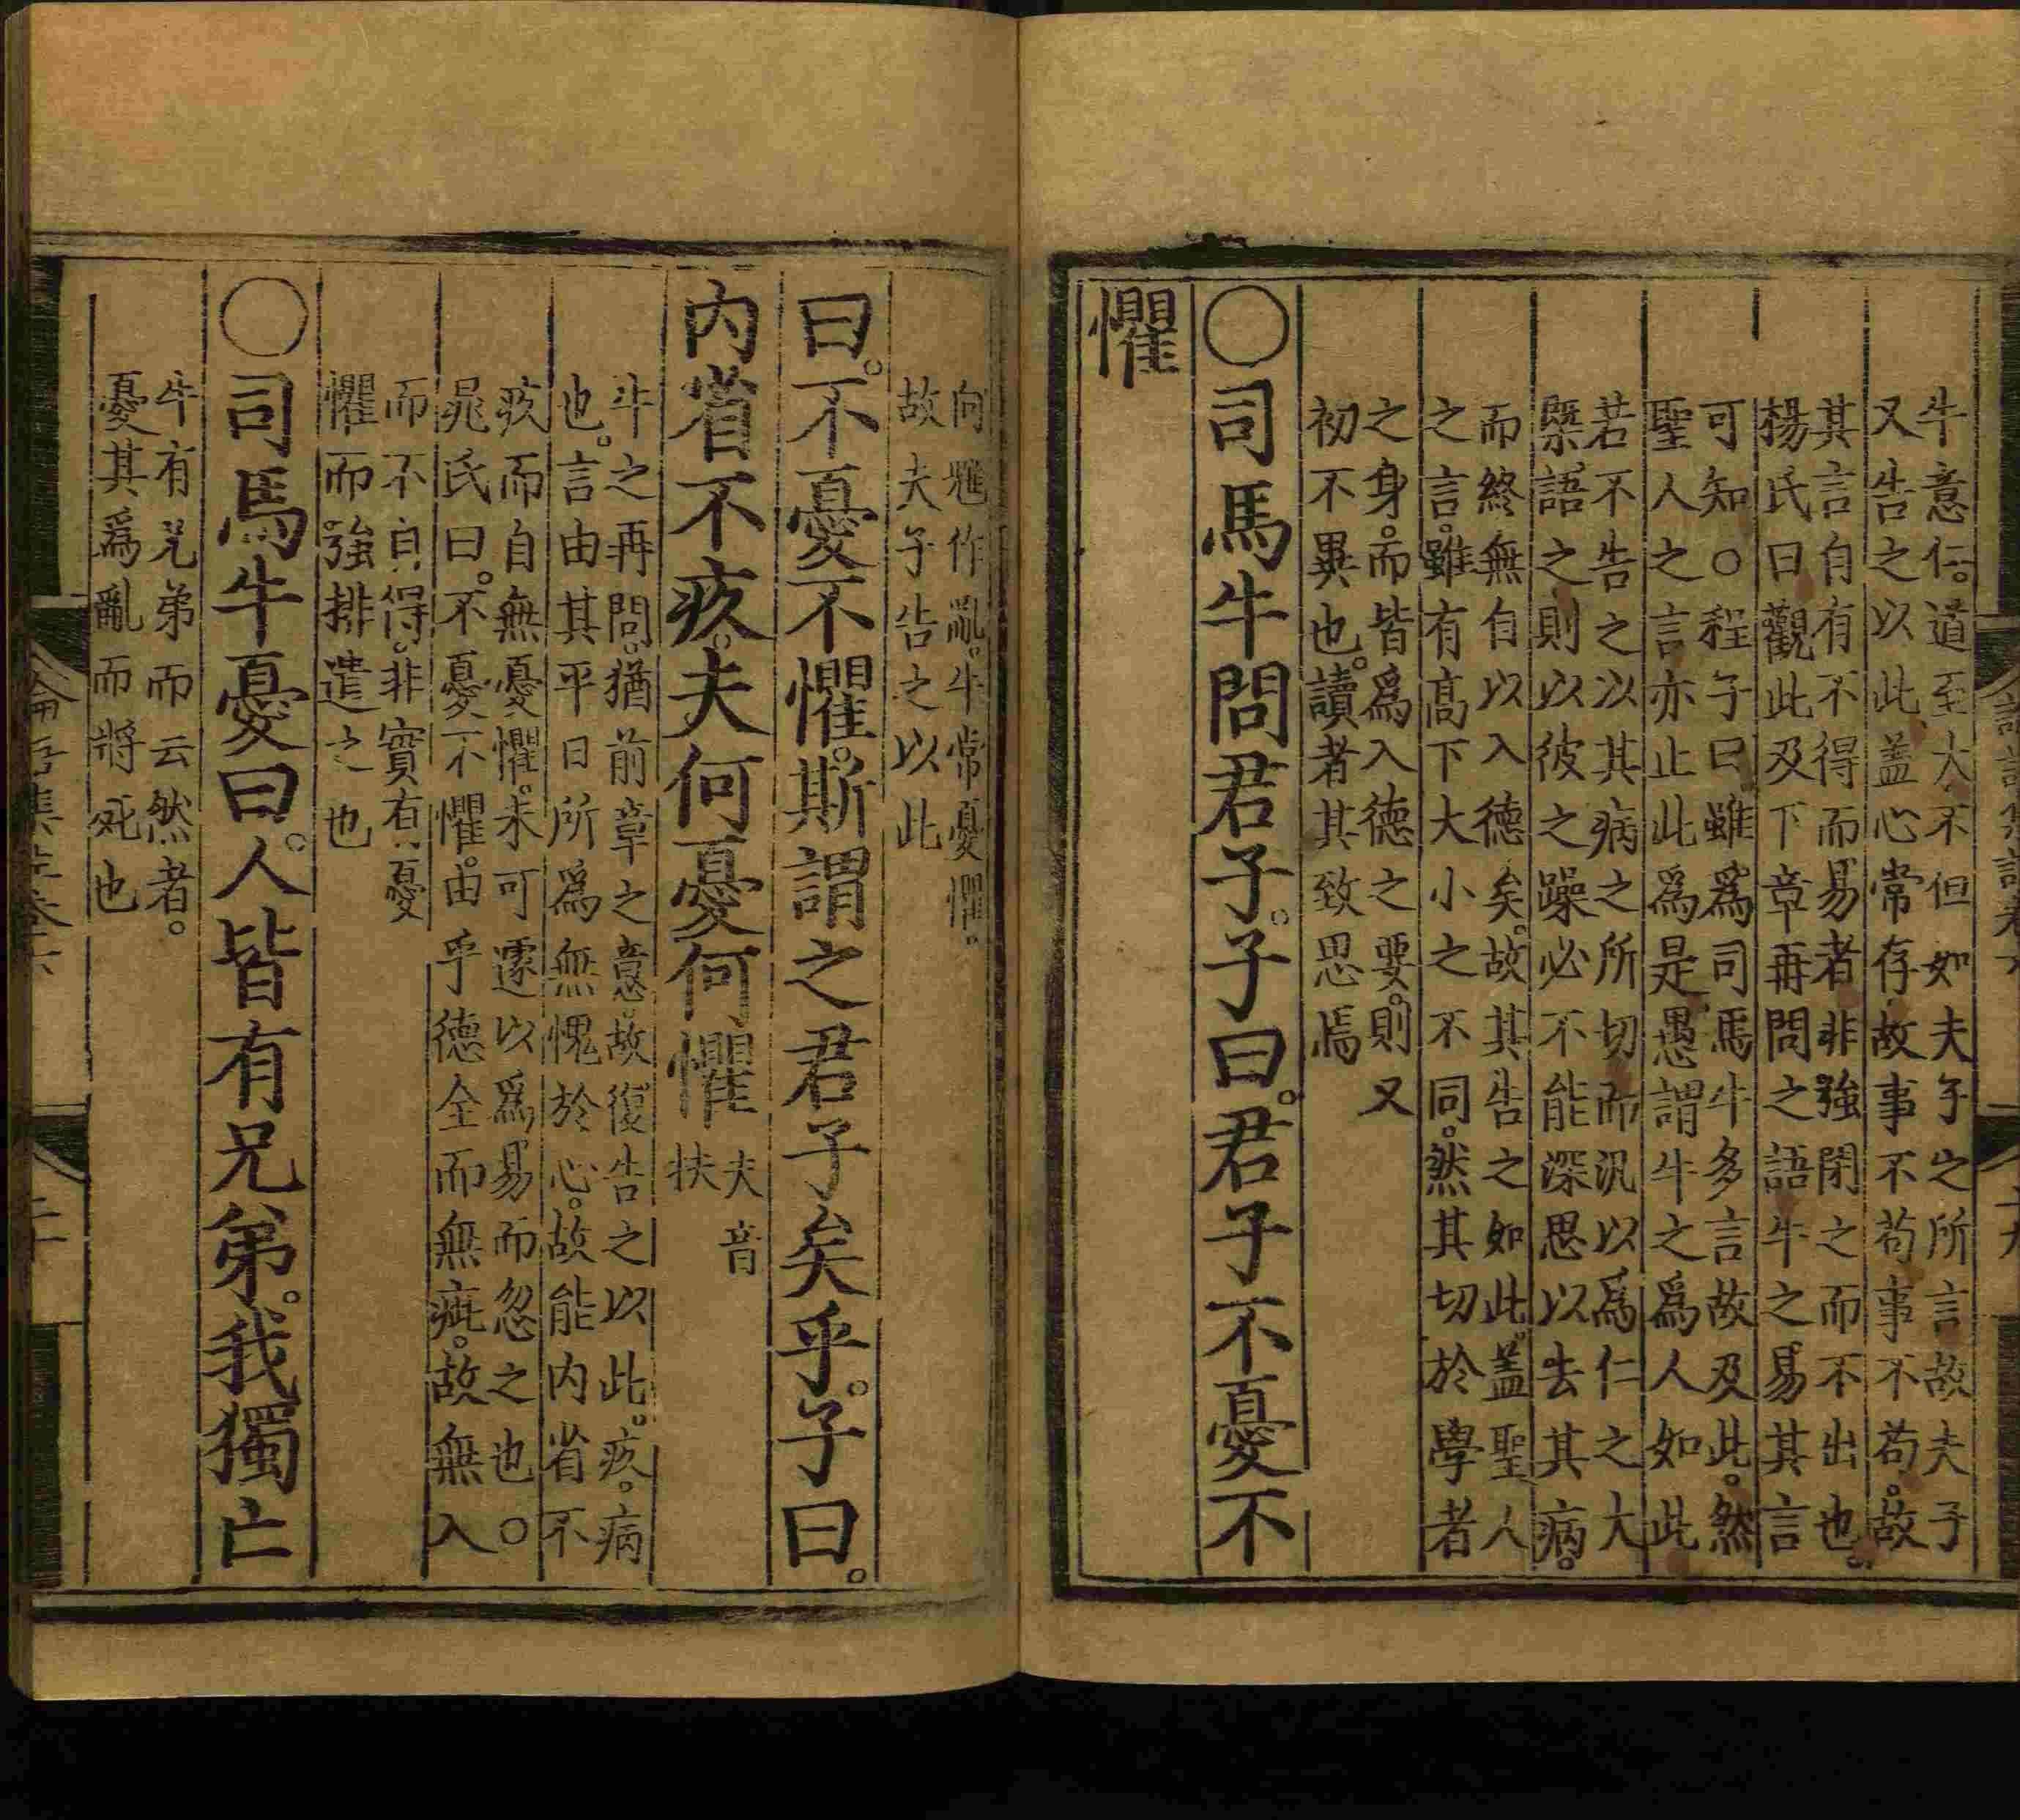 牛意仁。道至大不但如夫子之所言故夫子
又告之以此蓋心常存故事不苟事不苟。故
其言自有不得而易者非強閉之而不出也。
楊氏曰觀此及下章再問之語牛之易其言
可知○程子曰雖爲司馬牛多言故及此。然
聖人之言亦止此爲是愚謂牛之爲人如此
若不告之以其病之所切而汎以爲仁之大
槩語之則以彼之躁必不能深思以去其病。
而終無自以入德矣。故其告之如此蓋聖人
之言。雖有高下大小之不同。然其切於學者
之身。而皆爲入德之要。則又
初不異也。讀者其致思焉
○司馬牛問君子。子曰。君子不憂不
懼
向魋作亂。牛常憂懼。
故夫子告之以此
曰。不憂不懼。斯謂之君子矣乎。子曰。
內省不疚。夫何憂何懼 夫音
扶
牛之再問。猶前章之意。故復告之以此。疚。病
也。言由其平日所爲無愧於心。故能内省不
疚而自無憂懼。未可遽以爲易而忽之也。○
晁氏曰。不憂不懼。由乎德全而無疵。故無入
而不自得。非實有憂
懼而強排遣之也
○司馬牛憂曰。人皆有兄弟。我獨亡
牛有兄弟而云然者。
憂其爲亂而將死也